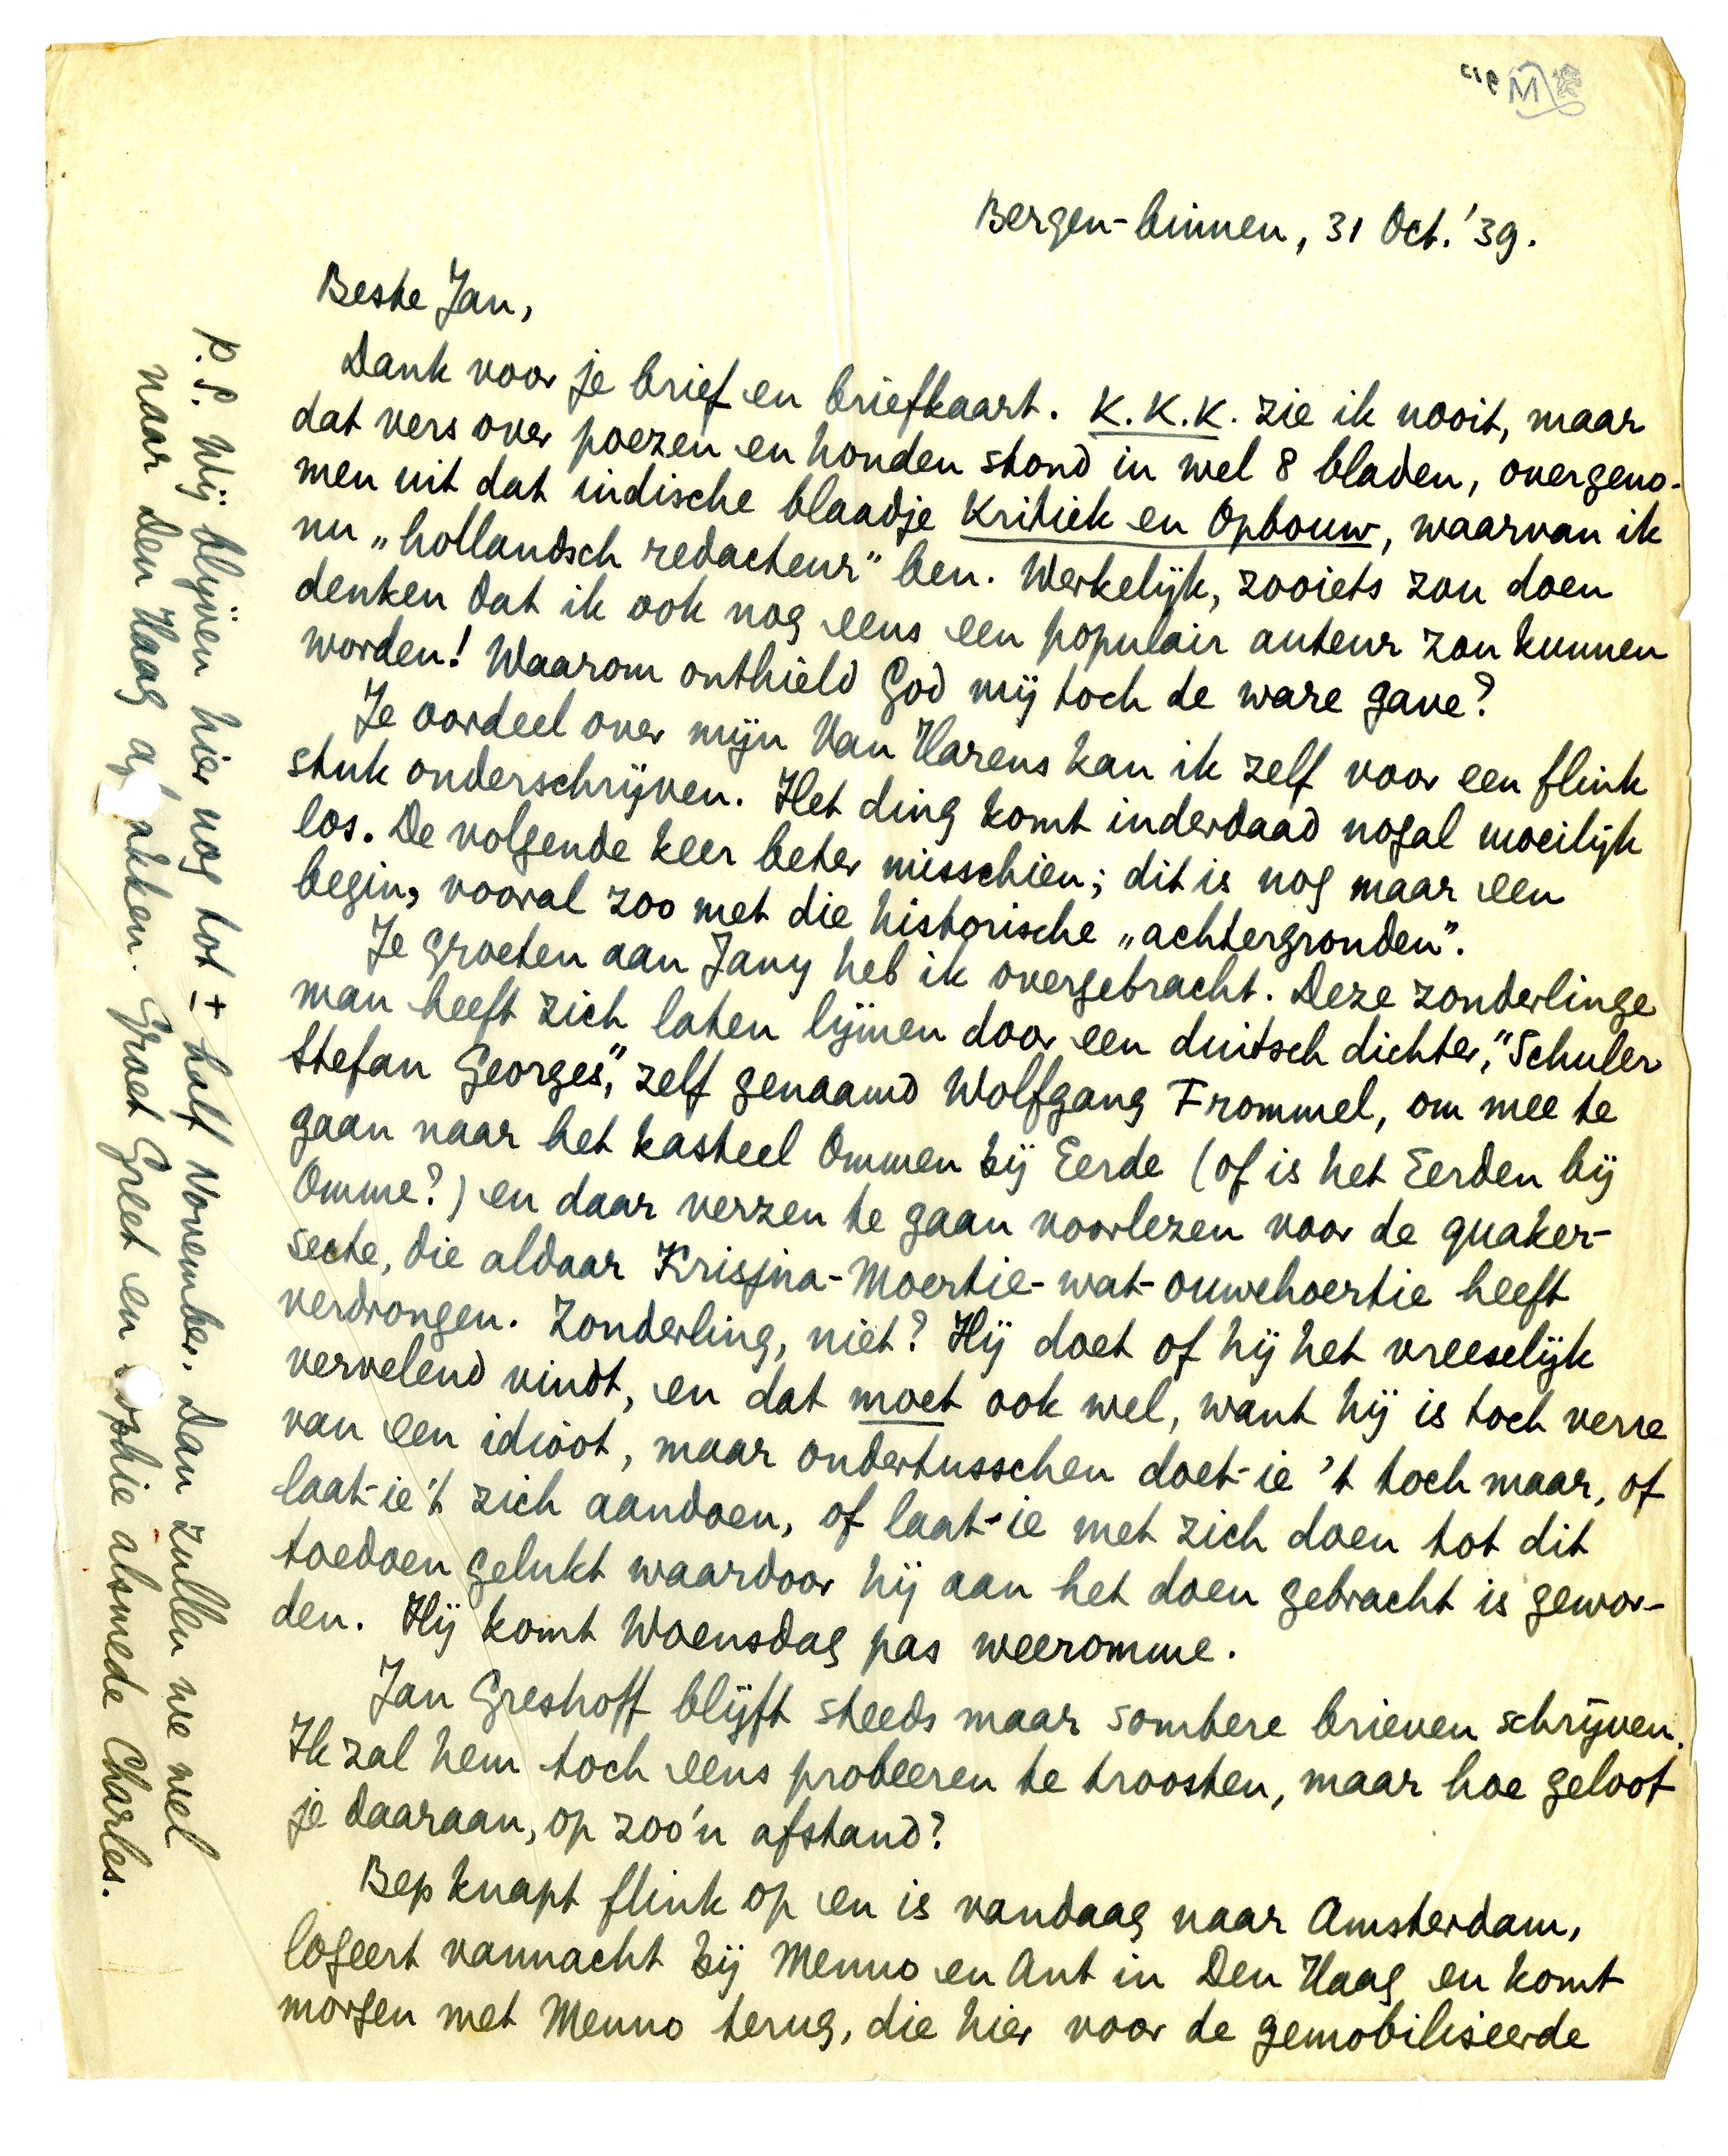 Bergen-binnen, 31 Oct. '39.
Beste Jan,
Dank voor je brief en briefkaart. K.K.K. zie ik nooit, maar
dat vers over poezen en honden stond in wel 8 bladen, overgeno-
men uit dat indische blaadje Kritiek en Opbouw, waarvan ik
nu „hollandsch redacteur" ben. Werkelijk, zooiets zou doen
denken dat ik ook nog eens een populair auteur zou kunnen
worden! Waarom onthield God mij toch de ware gave?
Je oordeel over mijn Van Harens kan ik zelf voor een flink
stuk onderschrijven. Het ding komt inderdaad nogal moeilijk
los. De volgende keer beter misschien; dit is nog maar een
begin, vooral zoo met die historische „achtergronden".
Je groeten aan Jany heb ik overgebracht. Deze zonderlinge
man heeft zich laten lijmen door een duitsch dichter, "Schuler
Stefan Georges", zelf genaamd Wolfgang Frommel, om mee te
gaan naar het kasteel Ommen bij Eerde (of is het Eerden bij
Omme?) en daar verzen te gaan voorlezen voor de quaker-
secte, die aldaar Krisjna-Moertie-wat-ouwehoertie heeft
verdrongen. Zonderling, niet? Hij doet of hij het vreeselijk
vervelend vindt, en dat moet ook wel, want hij is toch verre
van een idioot, maar ondertusschen doet-ie 't toch maar, of
laat-ie 't zich aandoen, of laat-ie met zich doen tot dit
toedoen gelukt waardoor hij aan het doen gebracht is gewor-
den. Hij komt Woensdag pas weeromme.
Jan Greshoff blijft steeds maar sombere brieven schrijven.
Ik zal hem toch eens probeeren te troosten, maar hoe geloof
je daaraan, op zoo'n afstand?
Bep knapt flink op en is vandaag naar Amsterdam,
logeert vannacht bij Menno en Ant in Den Haag en komt
morgen met Menno terug, die hier voor de gemobiliseerde
P.S. Wij blijven hier nog tot ± half November. Dan zullen we wel
naar Den Haag af akken. Groet Greet en ophie alsmede Charles.